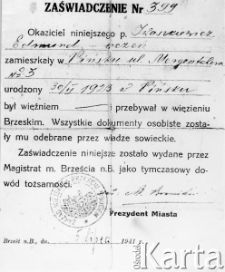 ZAŚWIADCZENIE Nr 399
Okaziciel niniejszego p. Iwaszkiewicz
Edmund - uczeń
zamieszkały w Pińsku ul. Morgentaleru
No 3
urodzony 30/V 1923 w Pińsku
był więźniem — przebywał w więzieniu
Brzeskim. Wszystkie dokumenty osobiste zosta-
ły mu odebrane przez władze sowieckie.
Zaświadczenie niniejsze zostało wydane przez
Magistrat m. Brześcia n.B. jako tymczasowy do-
wód tożsamości.
Prezydent Miasta
Brześć n.B., dn. 1941 r.